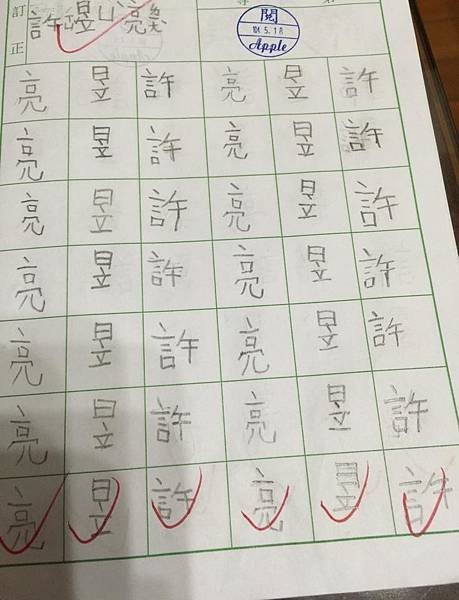 訂正
閱
104.5.18
Apple
亮 昱 許 亮 昱 許
亮 昱 許 亮 昱 許
亮 昱 許 亮 昱 許
亮 昱 許 亮 昱 許
亮 昱 許 亮 昱 許
亮 昱 許 亮 昱 許
亮 昱 許 亮 昱 許